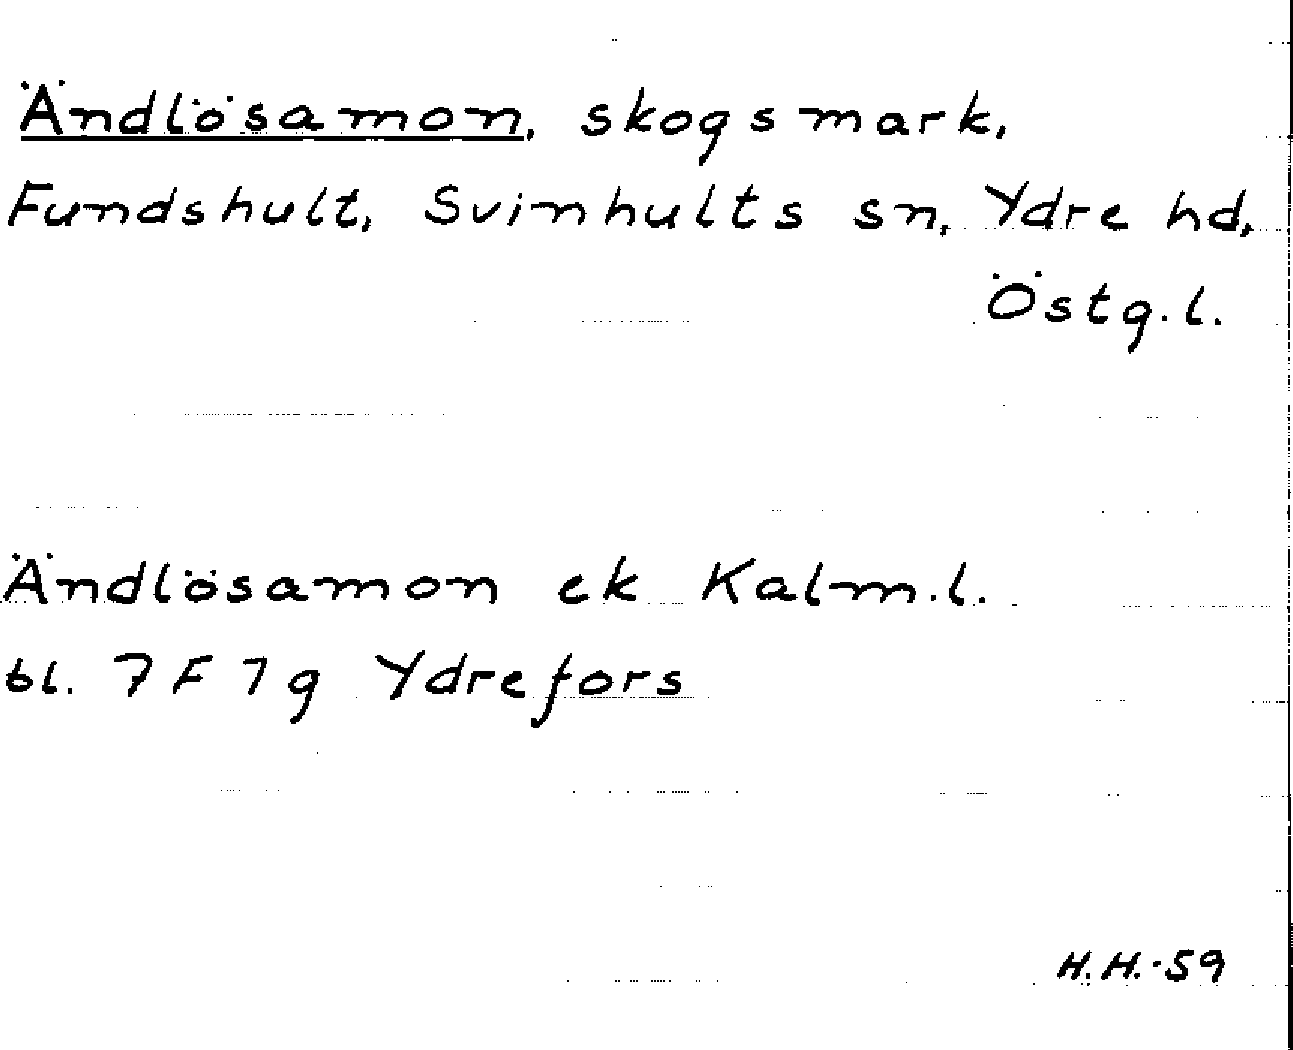 Ändlösamon, skogsmark,
Fundshult, Svinhults sn, Ydre hd,
Östg.l.
Ändlösamon ek Kalm.l.
bl. 7 F 7 g Ydrefors
H.H.-59